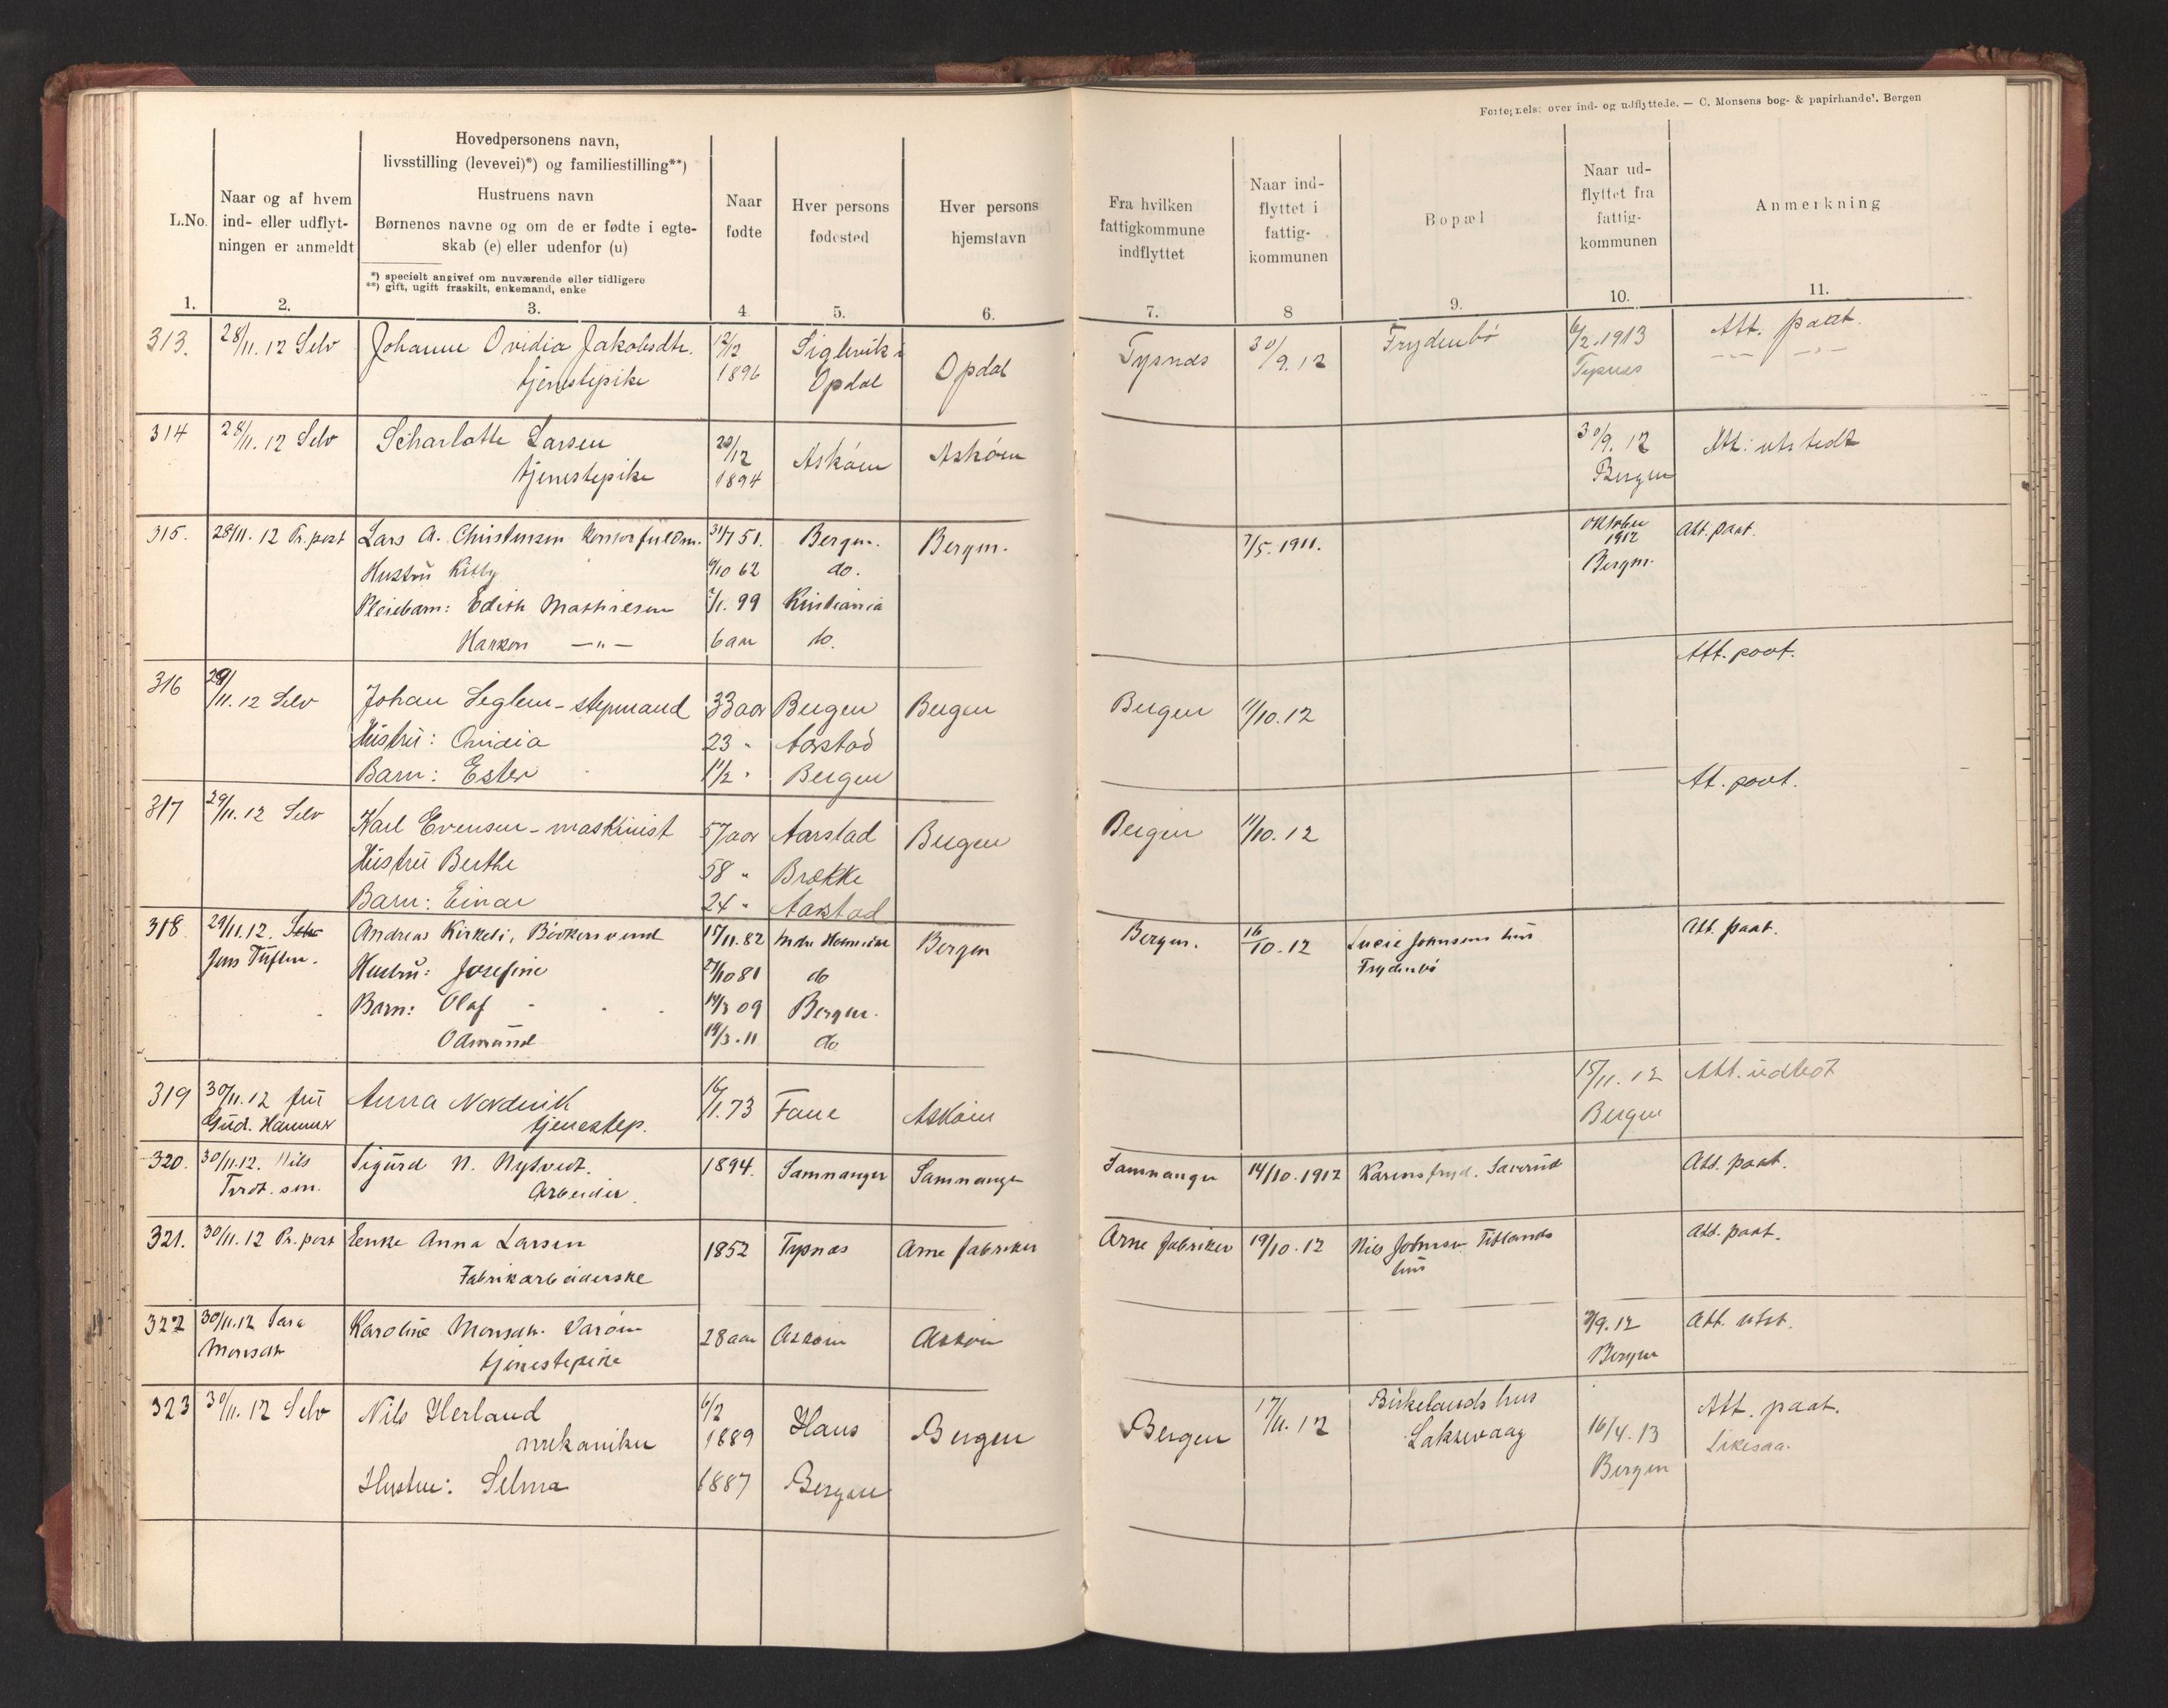 Fortegnelse over ind- og udflyttede. — C. Monsens bog- & papirhandel. Bergen
L.No.
1.
Naar og af hvem
ind- eller udflyt-
ningen er anmeldt
2.
Hovedpersonens navn,
livsstilling (levevei)*) og familiestilling**)
Hustruens navn
Børnenes navne og om de er fødte i egte-
skab (e) eller udenfor (u)
*) specielt angivet om nuværende eller tidligere
**) gift, ugift fraskilt, enkemand, enke
3.
Naar
fødte
4
Hver persons
fødested
5.
Hver persons
hjemstavn
6.
Fra hvilken
fattigkommune
indflyttet
7.
Naar ind-
flyttet i
fattig-
kommunen
8
Bopæl
9.
Naar ud-
flyttet fra
fattig-
kommunen
10.
Anmerkning
11.
313. 28/11. 12 Selv Johanne Ovidia Jakobsdtr. 12/2 Siglevik i Opdal Tysnæs 30/9. 12 Frydenbö 6/2. 1913 Att. paat.
tjenstepike 1896 Opdal Tysnes
314 28/11. 12 Selv Scharlotte Larsen 20/12 Asköen Asköen 30/9. 12 Att: utstedt
tjenestepike 1894 Bergen
315. 28/11. 12 Pr. post Lars A. Christensen 31/7 51. Bergen. Bergen. 7/5. 1911. oktober 1912 Att. paat.
Hustrü Kitty 9/10 62 do. Bergen.
Pleiebarn: Edith Mathiesen 2/1. 99 Kristiania
Haakon —"— 6 aar do.
316 29/11. 12 Selv Johan Seglem - stuemand 33 aar Bergen Bergen Bergen 11/10. 12 Att. paat.
Hüstrü: Ovidia 23 " Aarstad
Barn: Ester 1 1/2 " Bergen
317 29/11. 12 Selv Karl Evensen - maskinist 57 aar Aarstad Bergen Bergen 11/10. 12 At. paat.
Hüstrü Berthe 58 " Brekke
Barn: Einar 24 " Aarstad
318 29/11. 12. Selv Andreas Kirkeli, Bödkersvend 15/11. 82 Bergen Bergen. 16/10. 12 Lucie Johnsens hüs Att. paat.
Jens Tüften. Hustrü: Josefine 27/10 81 do Frydenbö
Barn: Olaf 14/3 09 Bergen.
Odmünd 19/3. 11 do
319 30/11. 12 frü Anna Nordvik 16/1. 73 Fane Asköen 15/11. 12 Att. üdstedt
Güd. Hammer tjenestep. Bergen
320. 30/11. 12. Nils Sigürd N. Nytvedt. 1894. Samnanger Samnanger Samnanger 14/10. 1912 Karensfryd. Att. paat.
sen. Arbeider.
321. 30/11. 12 Pr. post Enke Anna Larsen 1852 Tysnæs Arne fabriker Arne fabriker 19/10. 12 Nils Johnsen Titlands Att. paat.
Fabrikarbeiderske hüs
322 30/11. 12 Sara Karoline Monsdtr. 28 aar Asköen Asköen 9. 12 Att. utst.
Monsdtr tjenestepike Bergen
323 30/11. 12 Selv Nils Herland 6/2 Haus Bergen Bergen 17/11. 12 Birkelands hus 16/4. 13 Att. paat.
mekaniker 1889 Laksevaag Bergen Likesaa.
Hustru: Selma 1887 Bergen